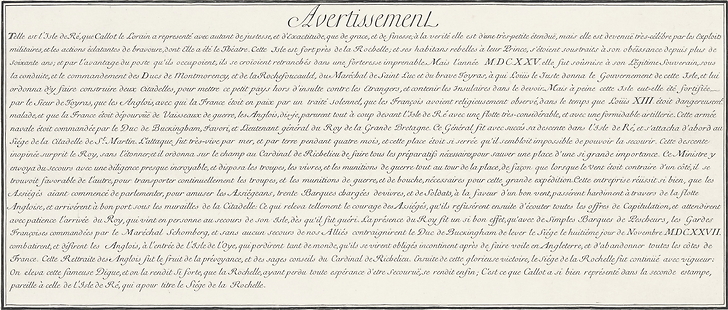 Avertissement
Telle est l'Isle de Ré, que Callot le Lorain a representé avec autant de justesse, et d'exactitude, que de grace, et de finesse, à la verité elle est d'une tres-petite étendüe, mais elle est devenuë tres-célébre par les Exploits
militaires, et les actions éclatantes de bravoure, dont Elle a été le Théatre. Cette Isle est fort près de la Rochelle, et ses habitans rebelles à leur Prince, s'étoient soustraits à son obéissance depuis plus de
soixante ans; et par l'avantage du poste qu'ils occupoient, ils se croioient retranchés dans une forteresse imprenable. Mais l'année MDCXXV. elle fut soûmise à son Légitime Souverain, sous
la conduite, et le commandement des Ducs de Montmorency, et de la Rochefoucauld, du Maréchal de Saint Luc et du brave Toyras, à qui Loüis le Juste donna le Gouvernement de cette Isle, et lui
ordonna d'y faire construire deux Citadelles, pour mettre ce petit pays hors d'insulte contre les Etrangers, et contenir les Insulaires dans le devoir. Mais à peine cette Isle eut-elle été fortifiée
par le Sieur de Toyras, que les Anglois, avec qui la France étoit en paix par un traité solemnel, que les François avoient religieusement observé, dans le temps que Loüis XIII. étoit dangereusem.t
malade, et que la France étoit dépourvüe de Vaisseaux de guerre, les Anglois, dis-je, parurent tout à coup devant l'Isle de Ré avec une flotte tres-considérable, et avec une formidable artillerie. Cette armée
navale étoit commandée par le Duc de Buckingham, Favori, et Lieutenant général du Roy de la Grande Bretagne. Ce Général fit avec succès sa descente dans l'Isle de Ré, et s'attacha d'abord au
Siége de la Citadelle de S.t Martin. L'attaque fut tres-vive par mer, et par terre pendant quatre mois, et cette place étoit si serrée qu'il sembloit impossible de pouvoir la secourir. Cette descente
inopinée surprit le Roy, sans l'étonner, et il ordonna sur le champ au Cardinal de Richelieu de faire tous les préparatifs nécessaires, pour sauver une place d'une si grande importance. Ce Ministre y
envoya du secours avec une diligence presque incroyable, et disposa les troupes, les vivres, et les munitions de guerre tout au tour de la place, de façon que lorsque le vent étoit contraire d'un côté, il se
trouvoit favorable de l'autre, pour transporter continuellement les troupes, et les munitions de guerre, et de bouche, nécessaires pour cette grande expédition. Cette entreprise réüssit si bien, que les
Assiégés aiant commancé de parlementer, pour amuser les Assiégeans, trente Barques chargées de vivres, et de Soldats, à la faveur d'un bon vent, passérent hardiment à travers de la flotte
Angloise, et arrivérent à bon port sous les murailles de la Citadelle. Ce qui releva tellement le courage des Assiégés, qu'ils refusérent ensuite d'écouter toutes les offres de Capitulation, et attendirent
avec patience l'arrivée du Roy, qui vint en personne au secours de son Isle, dès qu'il fut guéri. La présence du Roy fit un si bon effet, qu'avec de Simples Barques de Pescheurs, les Gardes
Françoises commandées par le Maréchal Schomberg, et sans aucun secours de nos Alliés contraignirent le Duc de Buckingham de lever le Siége le huitiéme jour de Novembre MDCXXVII.
combatirent, et défirent les Anglois, à l'entrée de l'Isle de l'Oye, qui perdirent tant de monde, qu'ils se virent obligés incontinent aprés de faire voile en Angleterre, et d'abandonner toutes les côtes de
France. Cette Rettraite des Anglois fut le fruit de la prévoyance, et des sages conseils du Cardinal de Richelieu. Ensuite de cette glorieuse victoire, le Siége de la Rochelle fut continué avec vigueur:
On eleva cette fameuse Digue, et on la rendit si forte, que la Rochelle, ayant perdu toute espérance d'etre secourüe, se rendit enfin; C'est ce que Callot a si bien représenté dans la seconde estampe,
pareille à celle de l'Isle de Ré, qui a pour titre le Siége de la Rochelle.